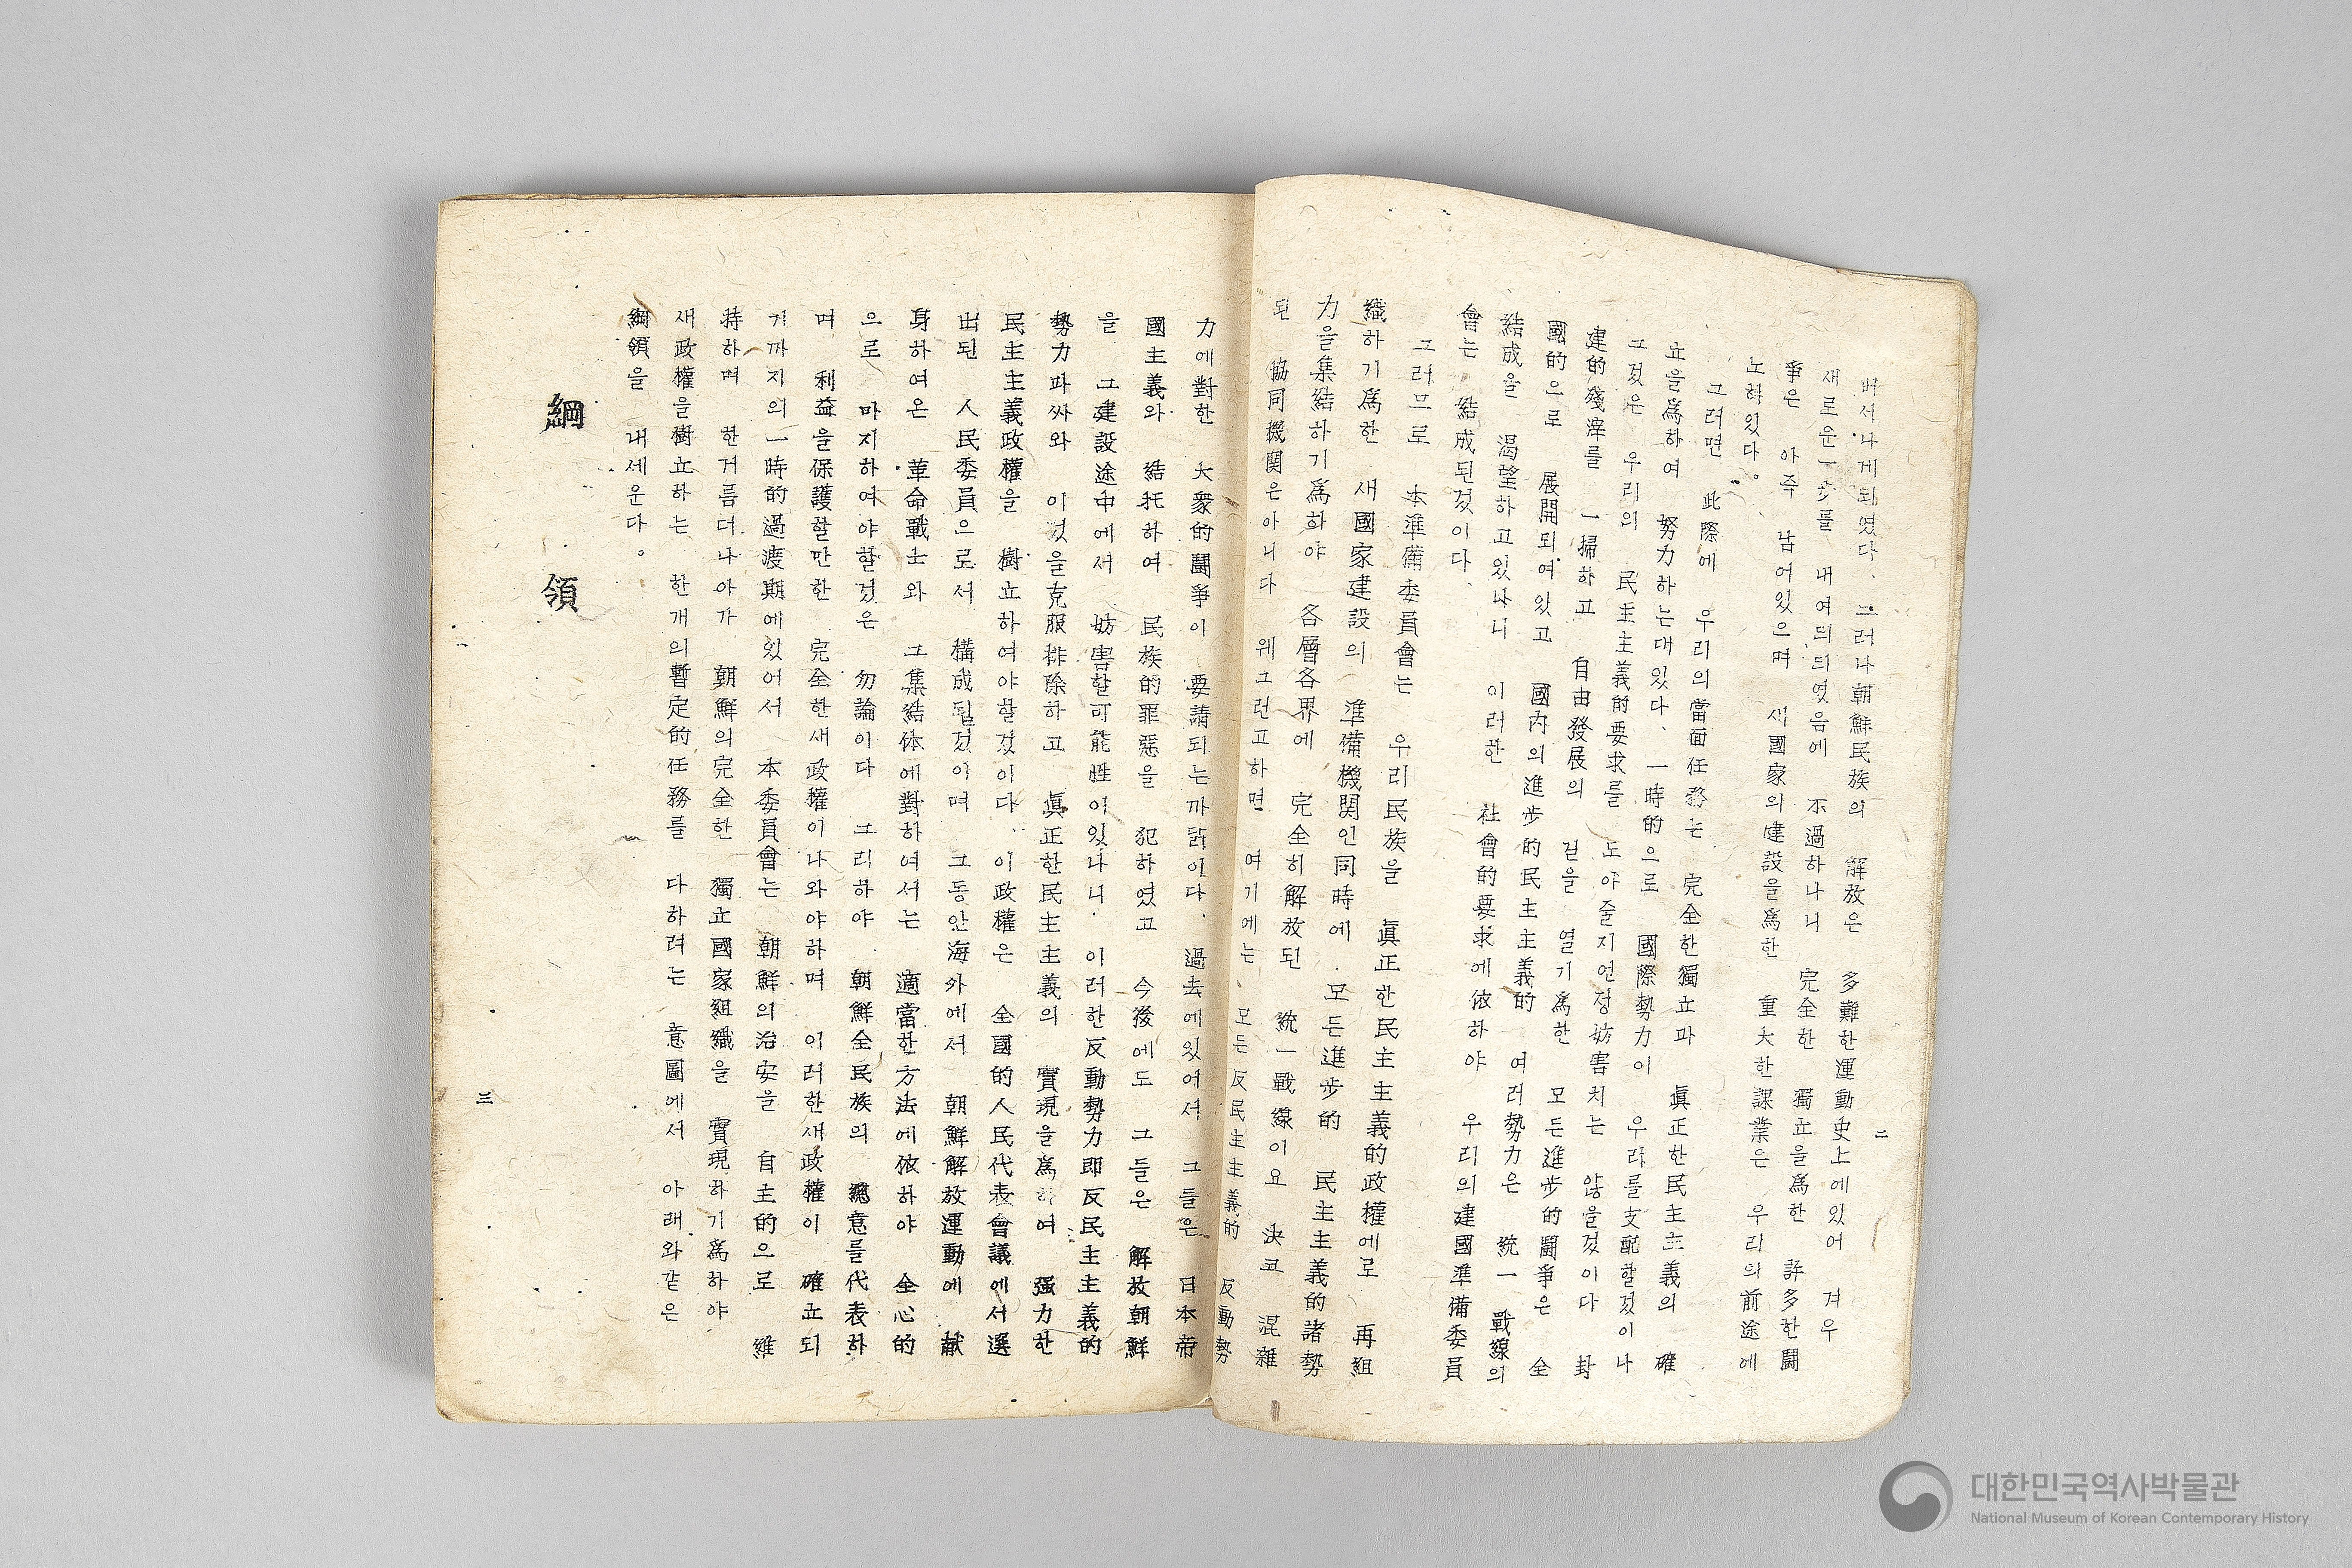 二
버서나게되였다. 그러나朝鮮民族의 解放은 多難한運動史上에있어 겨우
새로운一步를 내여듸듸였음에 不過하나니 完全한 獨立을爲한 許多한鬪
爭은 아즉 남어있으며 새國家의建設을爲한 重大한課業은 우리의前途에
노혀있다。
그러면 此際에 우리의當面任務는 完全한獨立과 眞正한民主主義의 確
立을爲하여 努力하는대있다、 一時的으로 國際勢力이 우리를支配할것이나
그것은 우리의 民主主義的要求를 도아줄지언정妨害치는 않을것이다 封
建的殘滓를 一掃하고 自由發展의 길을 열기爲한 모든進步的鬪爭은 全
國的으로 展開되여있고 國內의進步的民主主義的 여러勢力은 統一戰線의
結成을 渴望하고있나니 이러한 社會的要求에依하야 우리의建國準備委員
會는 結成된것이다.
그러므로 本準備委員會는 우리民族을 眞正한民主主義的政權에로 再組
織하기爲한 새國家建設의 準備機関인同時에 모든進步的 民主主義的諸勢
力을集結하기爲하야 各層各界에 完全히解放된 統一戰線이요 決코 混雜
된 協同機関은아니다 웨그런고하면 여기에는 모든反民主主義的 反動勢
力에對한 大衆的鬪爭이 要請되는까닭이다. 過去에있어서 그들은 日本帝
國主義와 結托하여 民族的罪惡을 犯하였고 今後에도 그들은 解放朝鮮
을 그建設途中에서 妨害할可能性이있나니. 이러한反動勢力即反民主主義的
勢力과싸와 이것을克服排除하고 眞正한民主主義의 實現을爲하여 强力한
民主主義政權을 樹立하여야할것이다. 이政權은 全國的人民代表會議에서選
出된 人民委員으로서 構成될것이며 그동안海外에서 朝鮮解放運動에 献
身하여온 革命戰士와 그集結体에對하여서는 適當한方法에依하야 全心的
으로 마지하여야할것은 勿論이다 그리하야 朝鮮全民族의 總意를代表하
며 利益을保護할만한 完全한새政權이나와야하며 이러한새政權이 確立되
기까지의一時的過渡期에있어서 本委員會는 朝鮮의治安을 自主的으로 維
持하며 한거름더나아가 朝鮮의完全한 獨立國家組織을 實現하기爲하야
새政權을樹立하는 한개의暫定的任務를 다하려는 意圖에서 아래와같은
綱領을 내세운다。
綱 領
三
대한민국역사박물관
National Museum of Korean Contemporary History